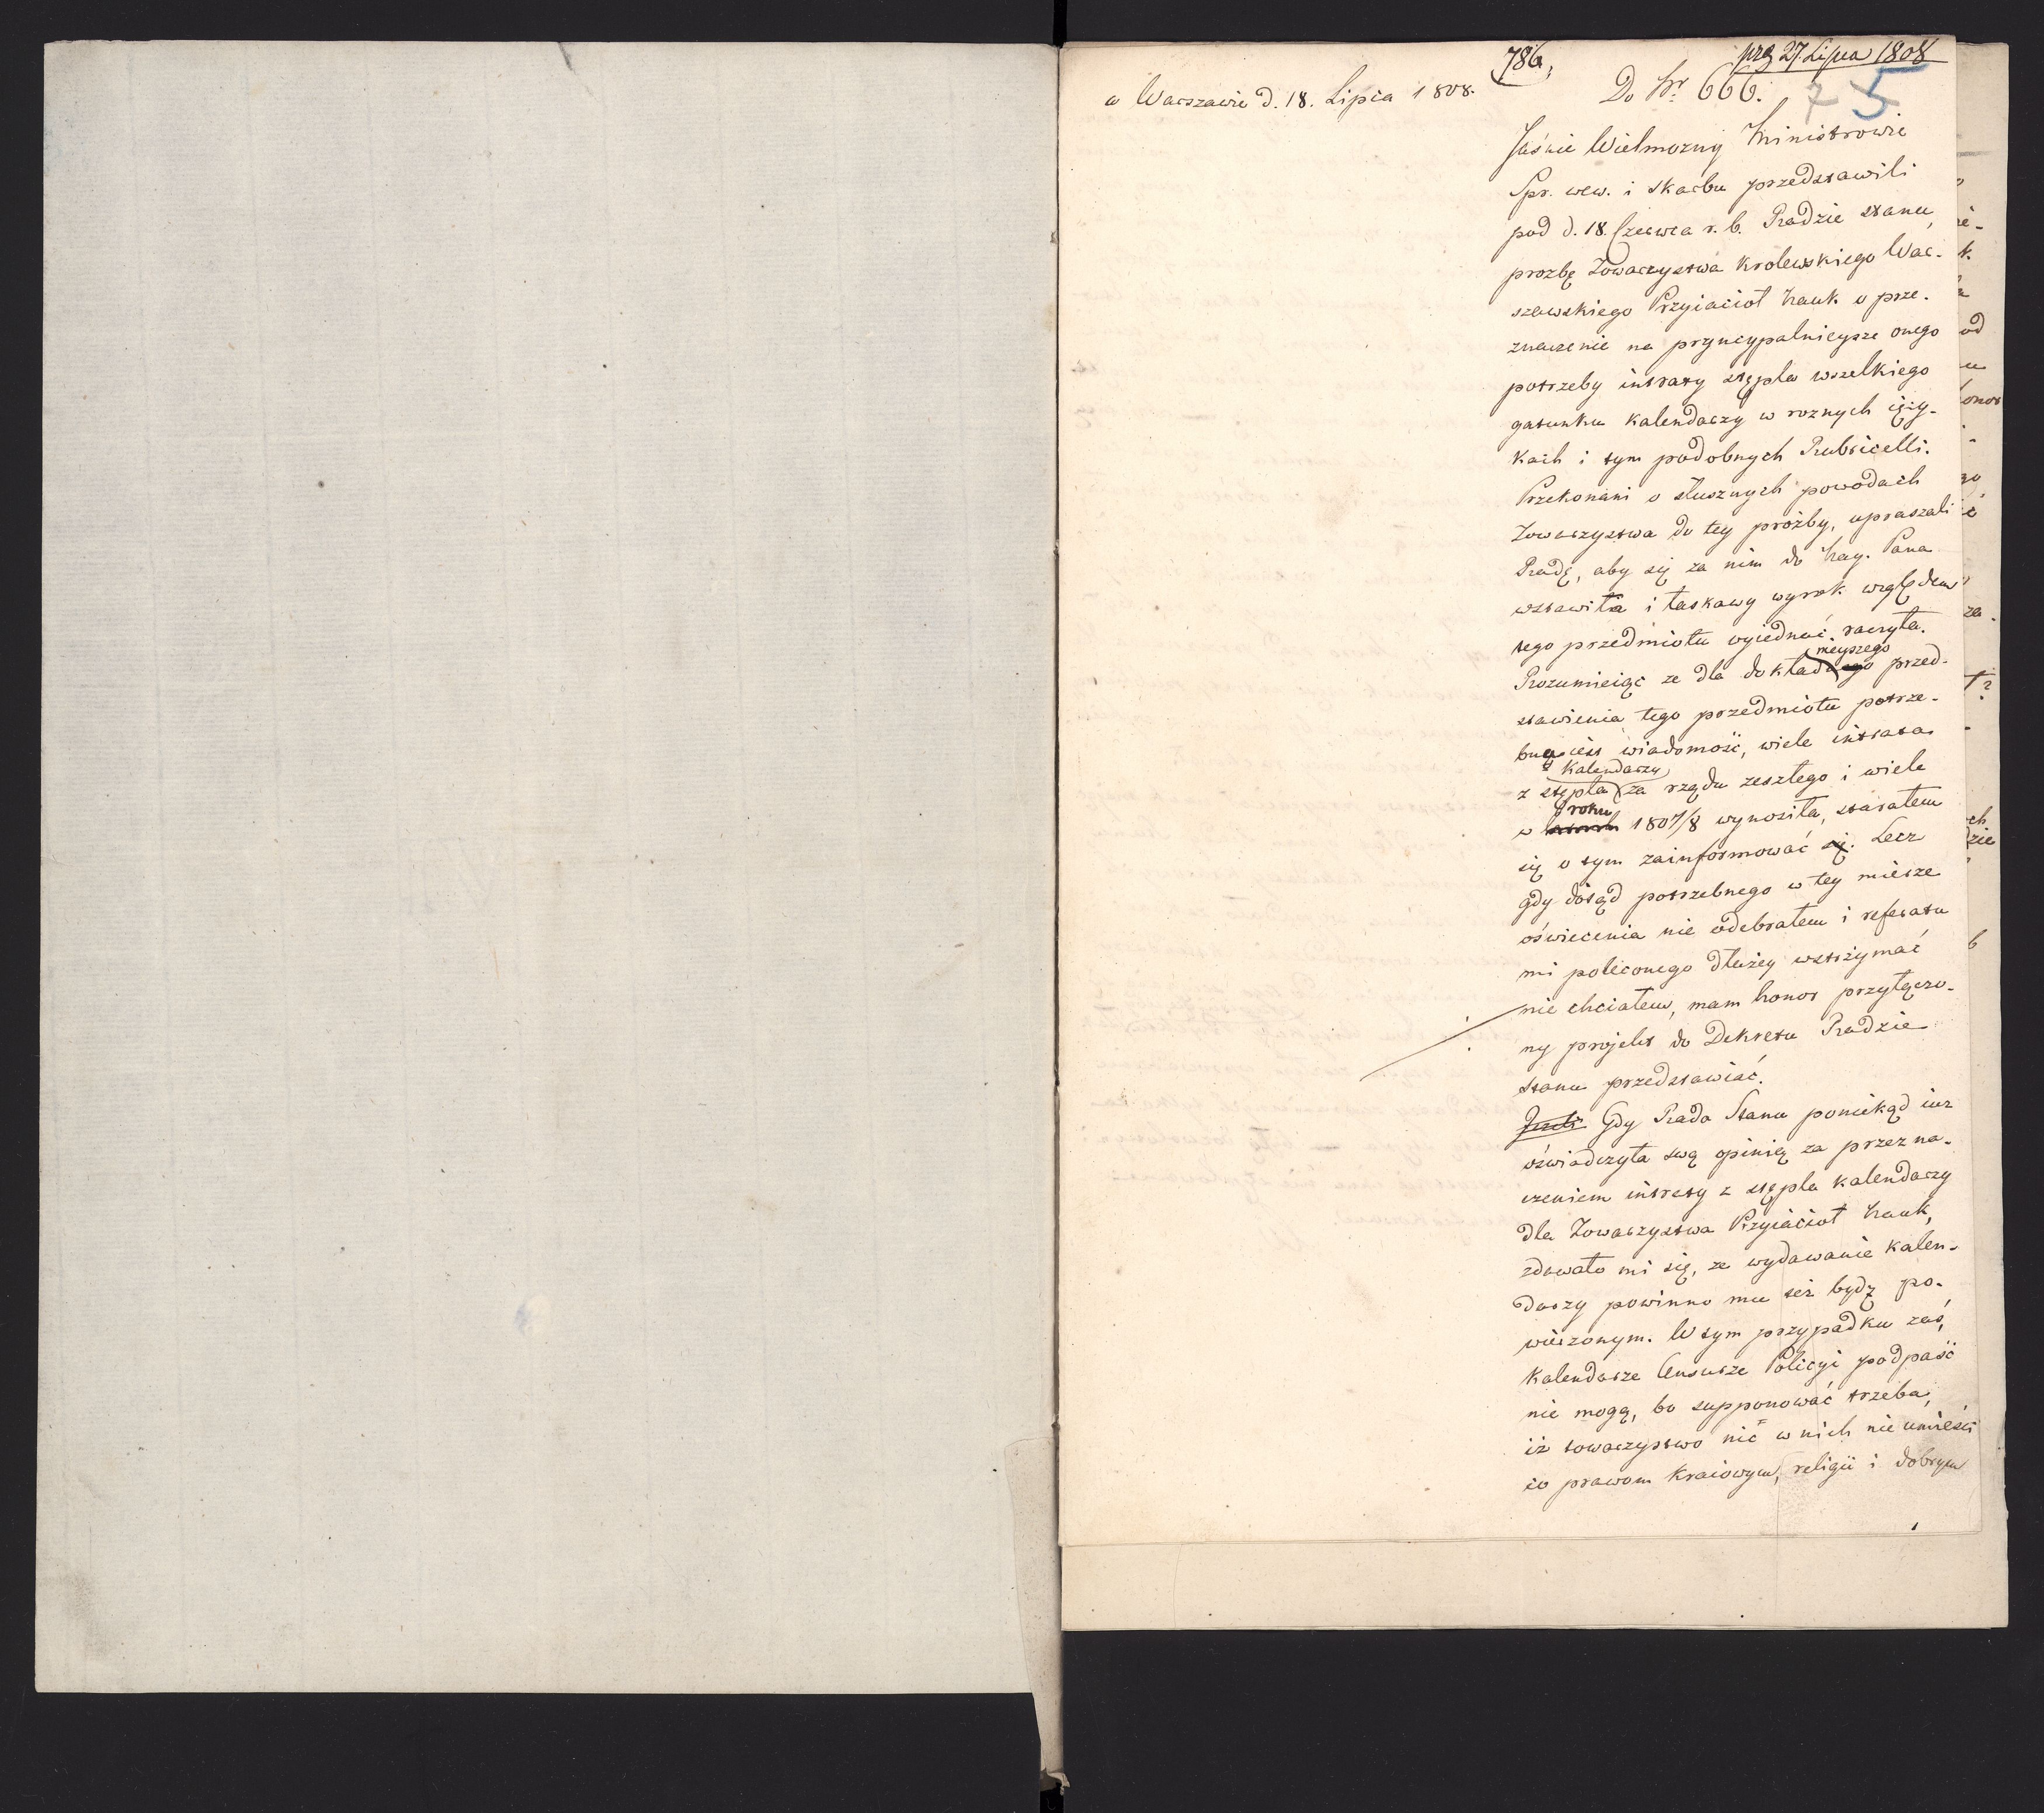 786,
prz 27. Lipca 1808
w Warszawie d. 18. Lipca 1808.
Do Nr: 666.
7 5
Jaśnie Wielmozny Ministrowie
Spr. wew. i skarbu przedstawili
pod d. 18. Czerwca r. b. Radzie stanu,
prozbę Towarzystwa Krolewskiego War-
szawskiego Przyiacioł Nauk o prze-
znaczenie na pryncypalnieysze onego
potrzeby intraty stępla wszelkiego
gatunku kalendarzy w roznych ięzy-
kach i tym podobnych Rubricelli.
Przekonani o słusznych powodach
Towarzystwa do tey proźby, upraszali
Radę, aby się za nim do Nay. Pana
wstawiła i łaskawy wyrok względem
tego przedmiotu wyiednać raczyła.
nieyszego
Rozumieiąc ze dla dokładnego przed-
stawienia tego przedmiotu potrze-
bną iest wiadomość, wiele intrata
kalendarzy
z stępla za rządu zeszłego i wiele
roku
w 1807/8 wynosiła, starałem
się o tym zainformować się. Lecz
gdy dotąd potrzebnego w tey mierze
oświecenia nie odebrałem i referatu
mi poleconego dłużey wstrzymać
nie chciałem, mam honor przyłączo-
ny projekt do Dekretu Radzie
stanu przedstawiać.
Jeżeli Gdy Rada Stanu poniekąd iuz
oświadczyła swą opinią za przezna-
czeniem intraty z stępla kalendarzy
dla Towarzystwa Przyiacioł Nauk,
zdawało mi się, ze wydawanie kalen-
darzy powinno mu też bydź po-
wierzonym. W tym przypadku zaś,
kalendarze Censurze Policyi podpaść
nie mogą, bo supponować trzeba,
iż towarzystwo nic w nich nie umieści
co prawom kraiowym, religii i dobrym